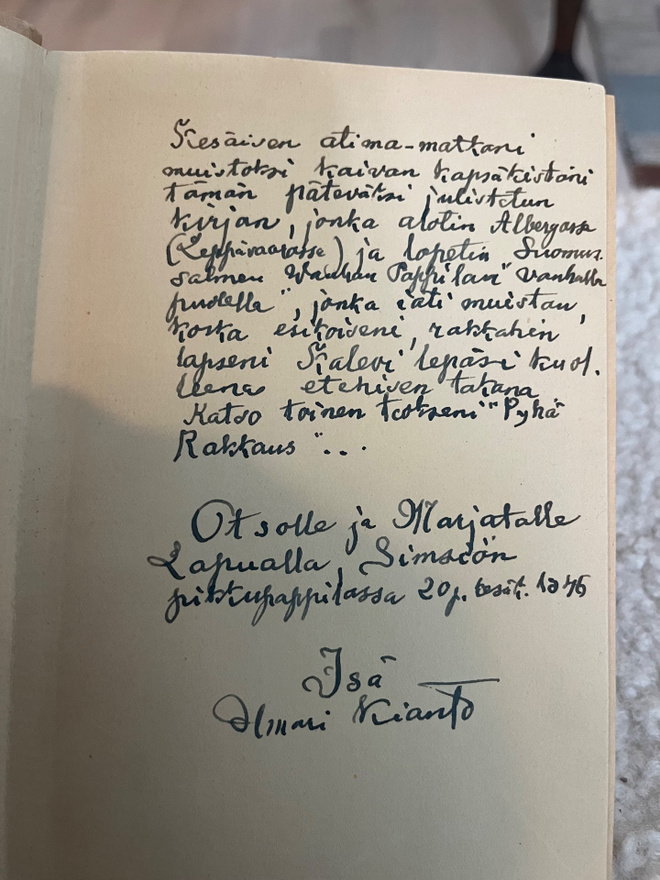 Kesäisen atima-matkani
muistoksi kaivan kapsäkistäni
tämän päteväksi julistetun
kirjan, jonka alotin Albergassa
(Leppävaarassa) ja lopetin Suomus-
salmen "Wanhan Pappilan" vanhalla
puolella", jonka iäti muistan,
koska esikoiseni, rakkahin
lapseni Kalevi lepäsi kuol-
leena eteisen takana
Katso toinen teokseni "Pyhä
Rakkaus"...
Otsolle ja Marjatalle
Lapualla, Simsiön
pikkupappilassa 20 p. kesäk. 1946
Isä
Ilmari Kianto